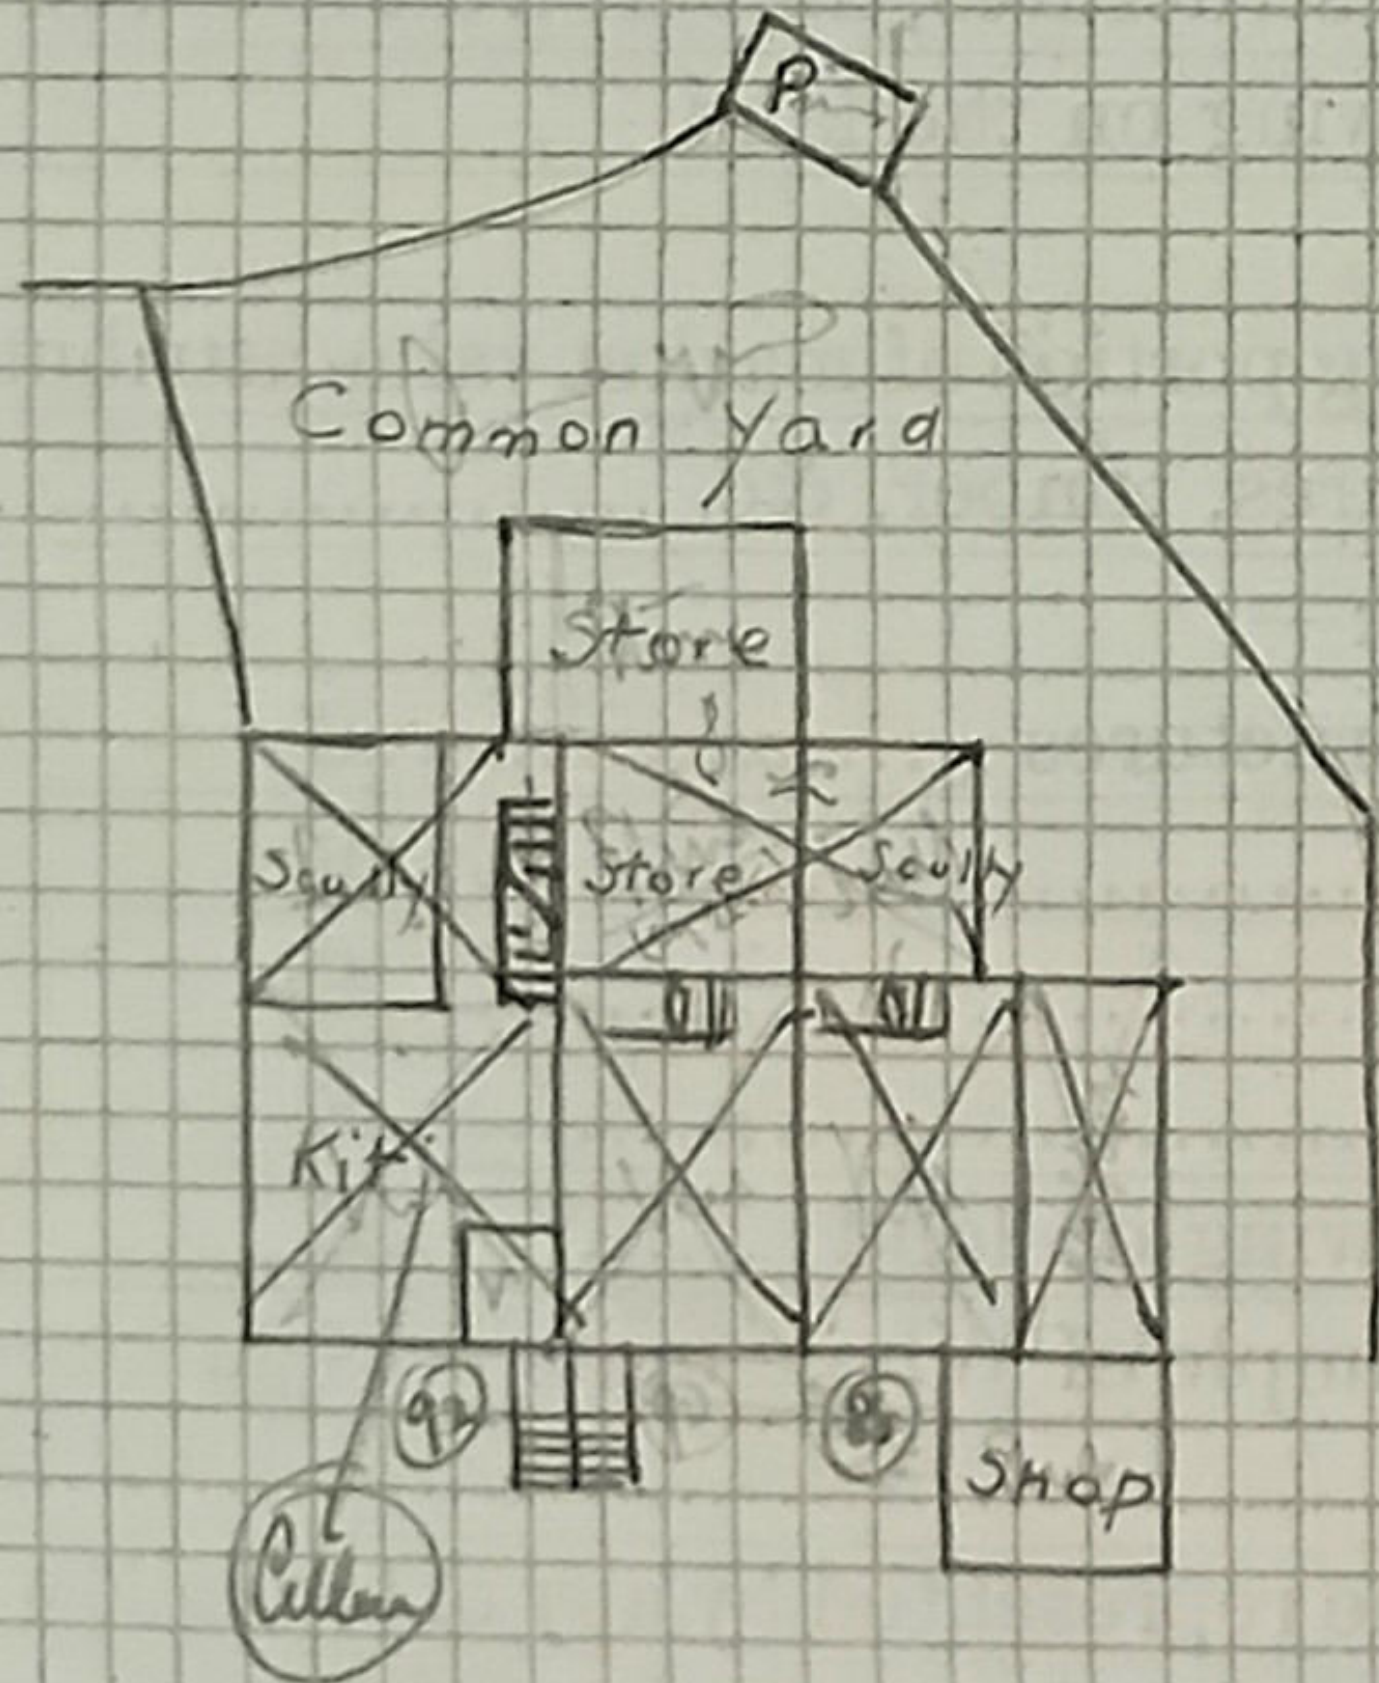 P
Common Yard
Store
Scully
Store
Scully
Kit
92
Shop